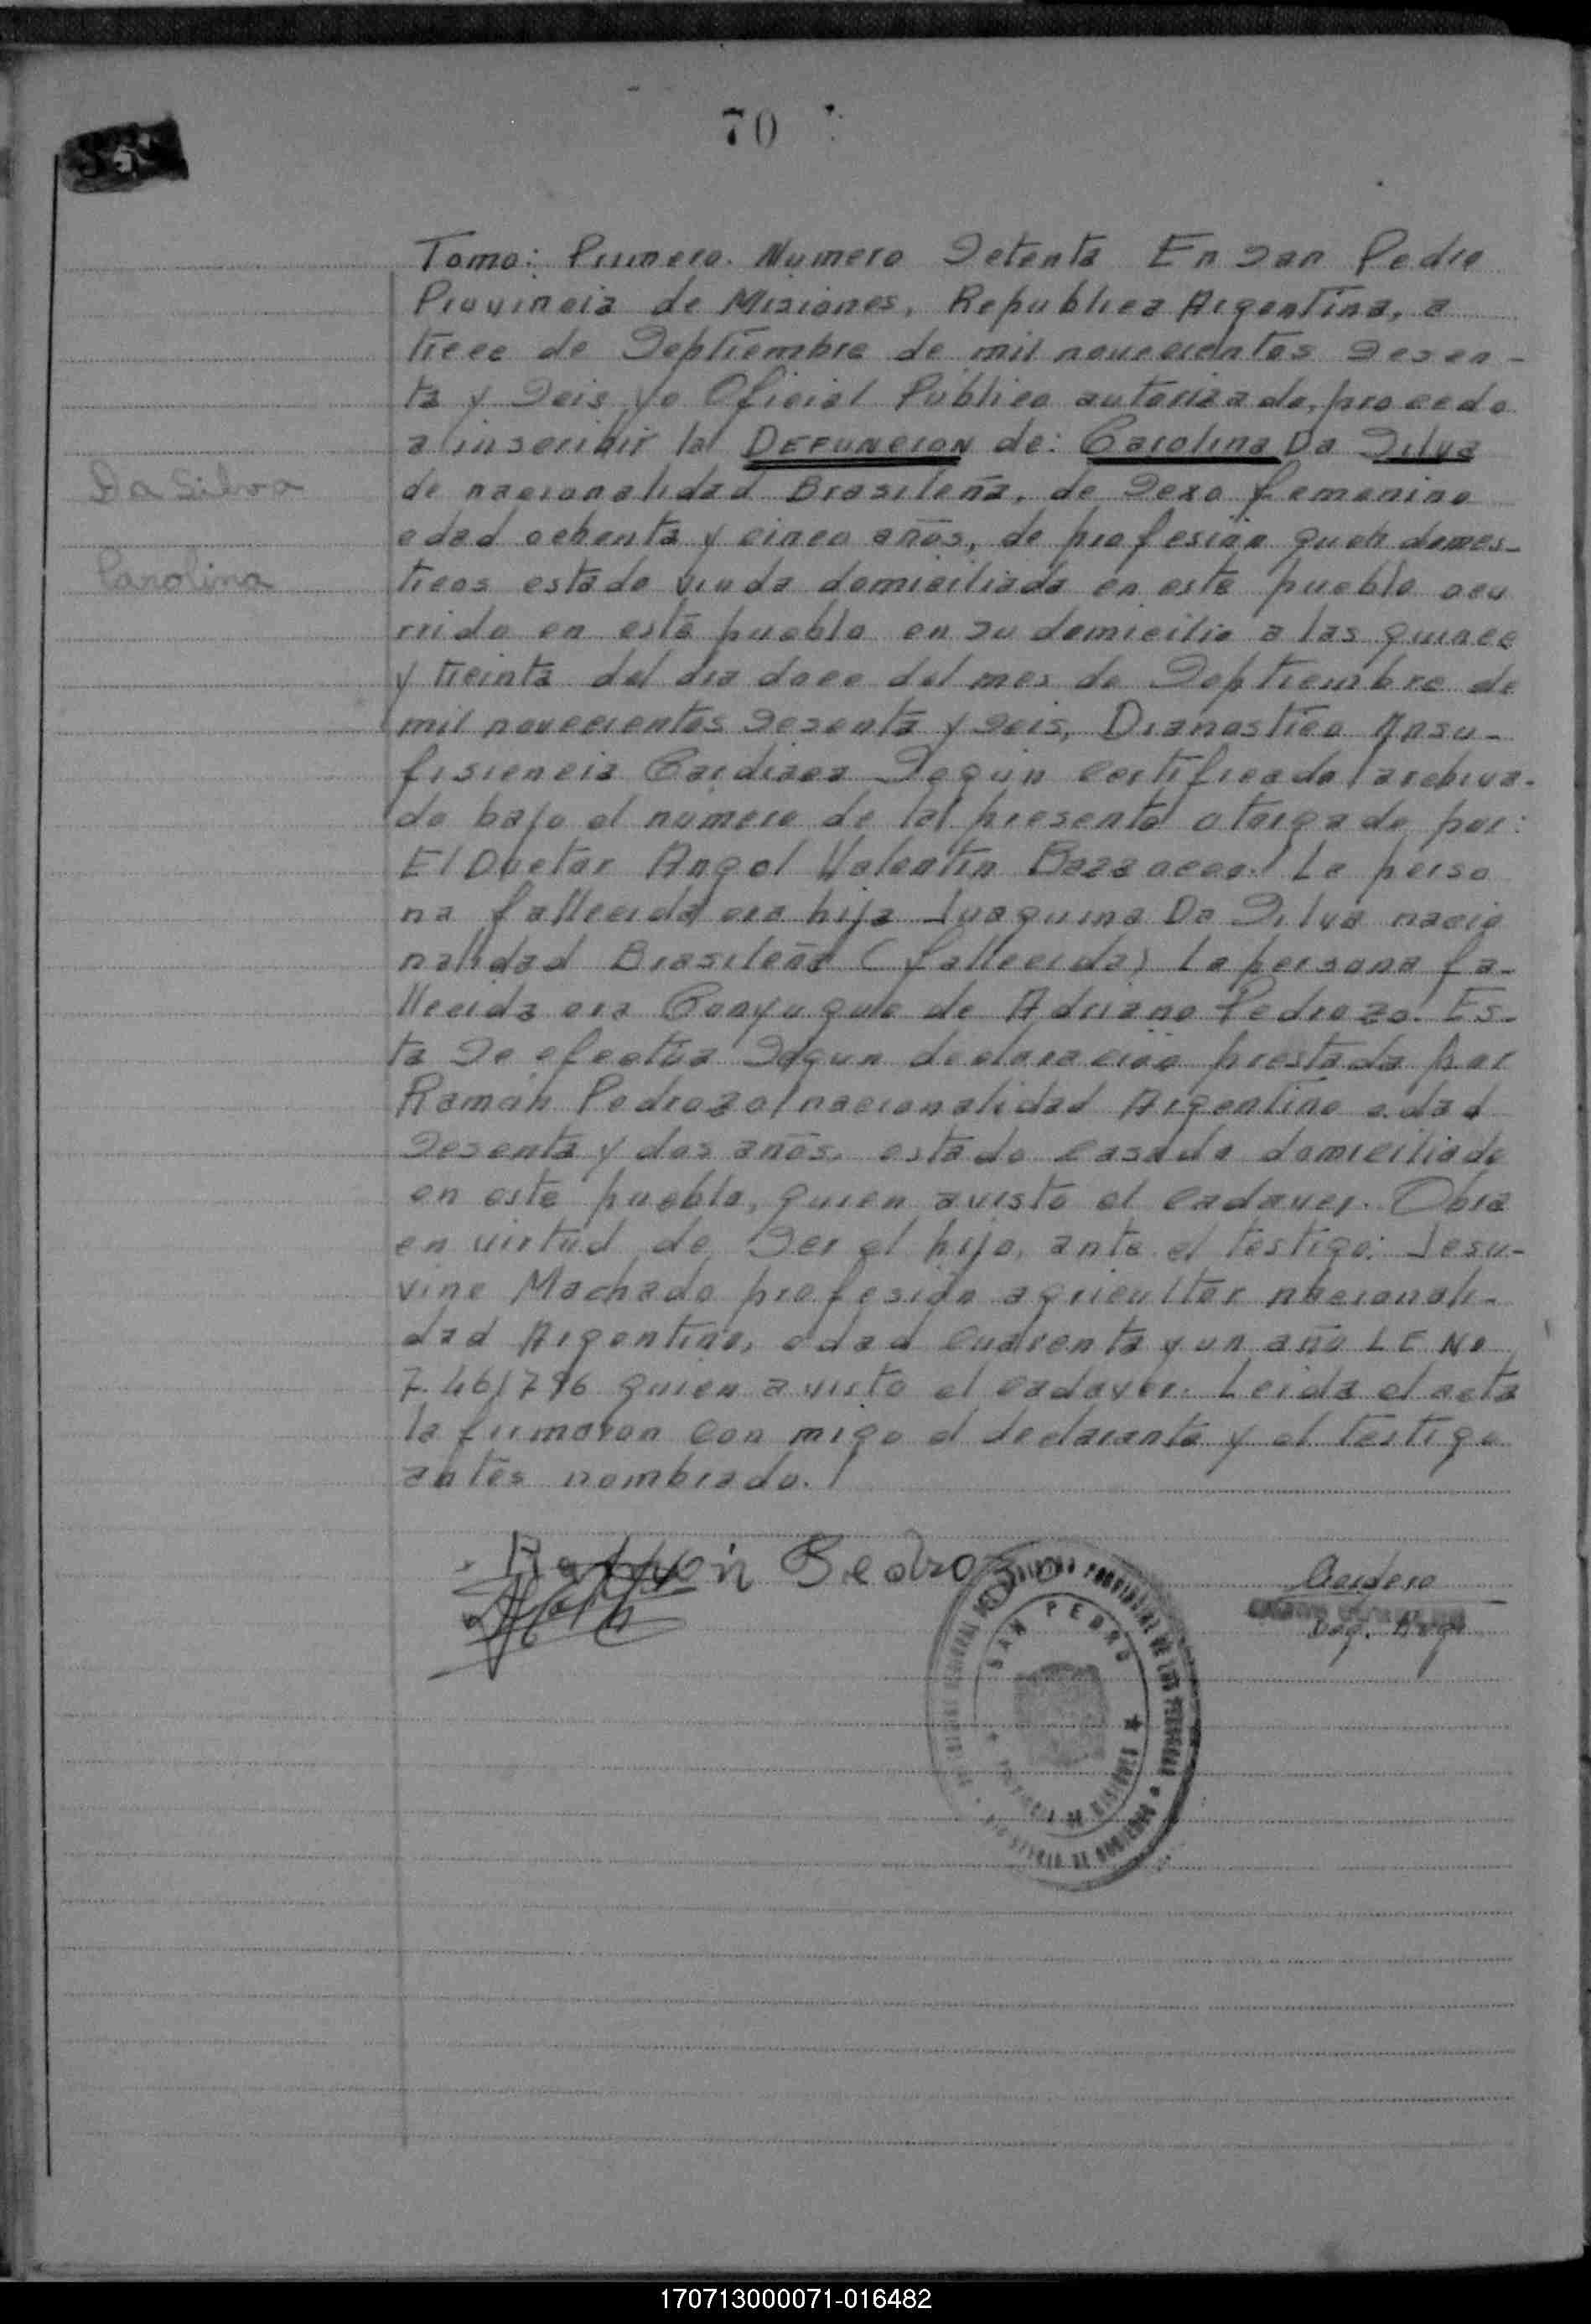 70
Tomo: Primero. Numero Setenta En San Pedro
Provincia de Misiones, Republica Argentina, a
trece de Septiembre de mil novecientos Sesen-
ta y Seis yo Oficial Publico autorizado, procedo
a inscribir la DEFUNCION de: Carolina Da Silva
Da Silva
de nacionalidad Brasileña, de Sexo femenino
edad ochenta y cinco años, de profesión queh domes-
Carolina
ticos estado viuda domiciliada en este pueblo ocu
rrido en este pueblo en su domicilio a las quince
y treinta del dia doce del mes de Septiembre de
mil novecientos Sesenta y Seis, Dianostico Insu-
fisiencia Cardiaca Según certificado archiva-
do bajo el número de la presente otorgado por:
El Doctor Angel Valentin La perso
na fallecida era hija Juaquina Da Silva nacio
nalidad Brasileña (fallecida) La persona fa-
llecida era Conyugue de Adriano Pedrozo. Es-
ta Se efectúa Segun declaración prestada por
Ramón Pedrozo nacionalidad Argentino edad
Sesenta y dos años, estado casado domiciliado
en este pueblo, quien avisto el cadaver. Obra
en virtud de Ser el hijo, ante el testigo: Jesu-
vine Machado profesión agricultor nacionali-
dad Argentino, edad cuarenta y un año L E No
7.461796 quien avisto el cadaver. Leida el acta
la firmaron con migo el declarante y el testigo
antes nombrado.
Ramón Pedrozo
SAN PEDRO
PROVINCIA DE MISIONES
MINISTERIO DE GOBIERNO
170713000071-016482